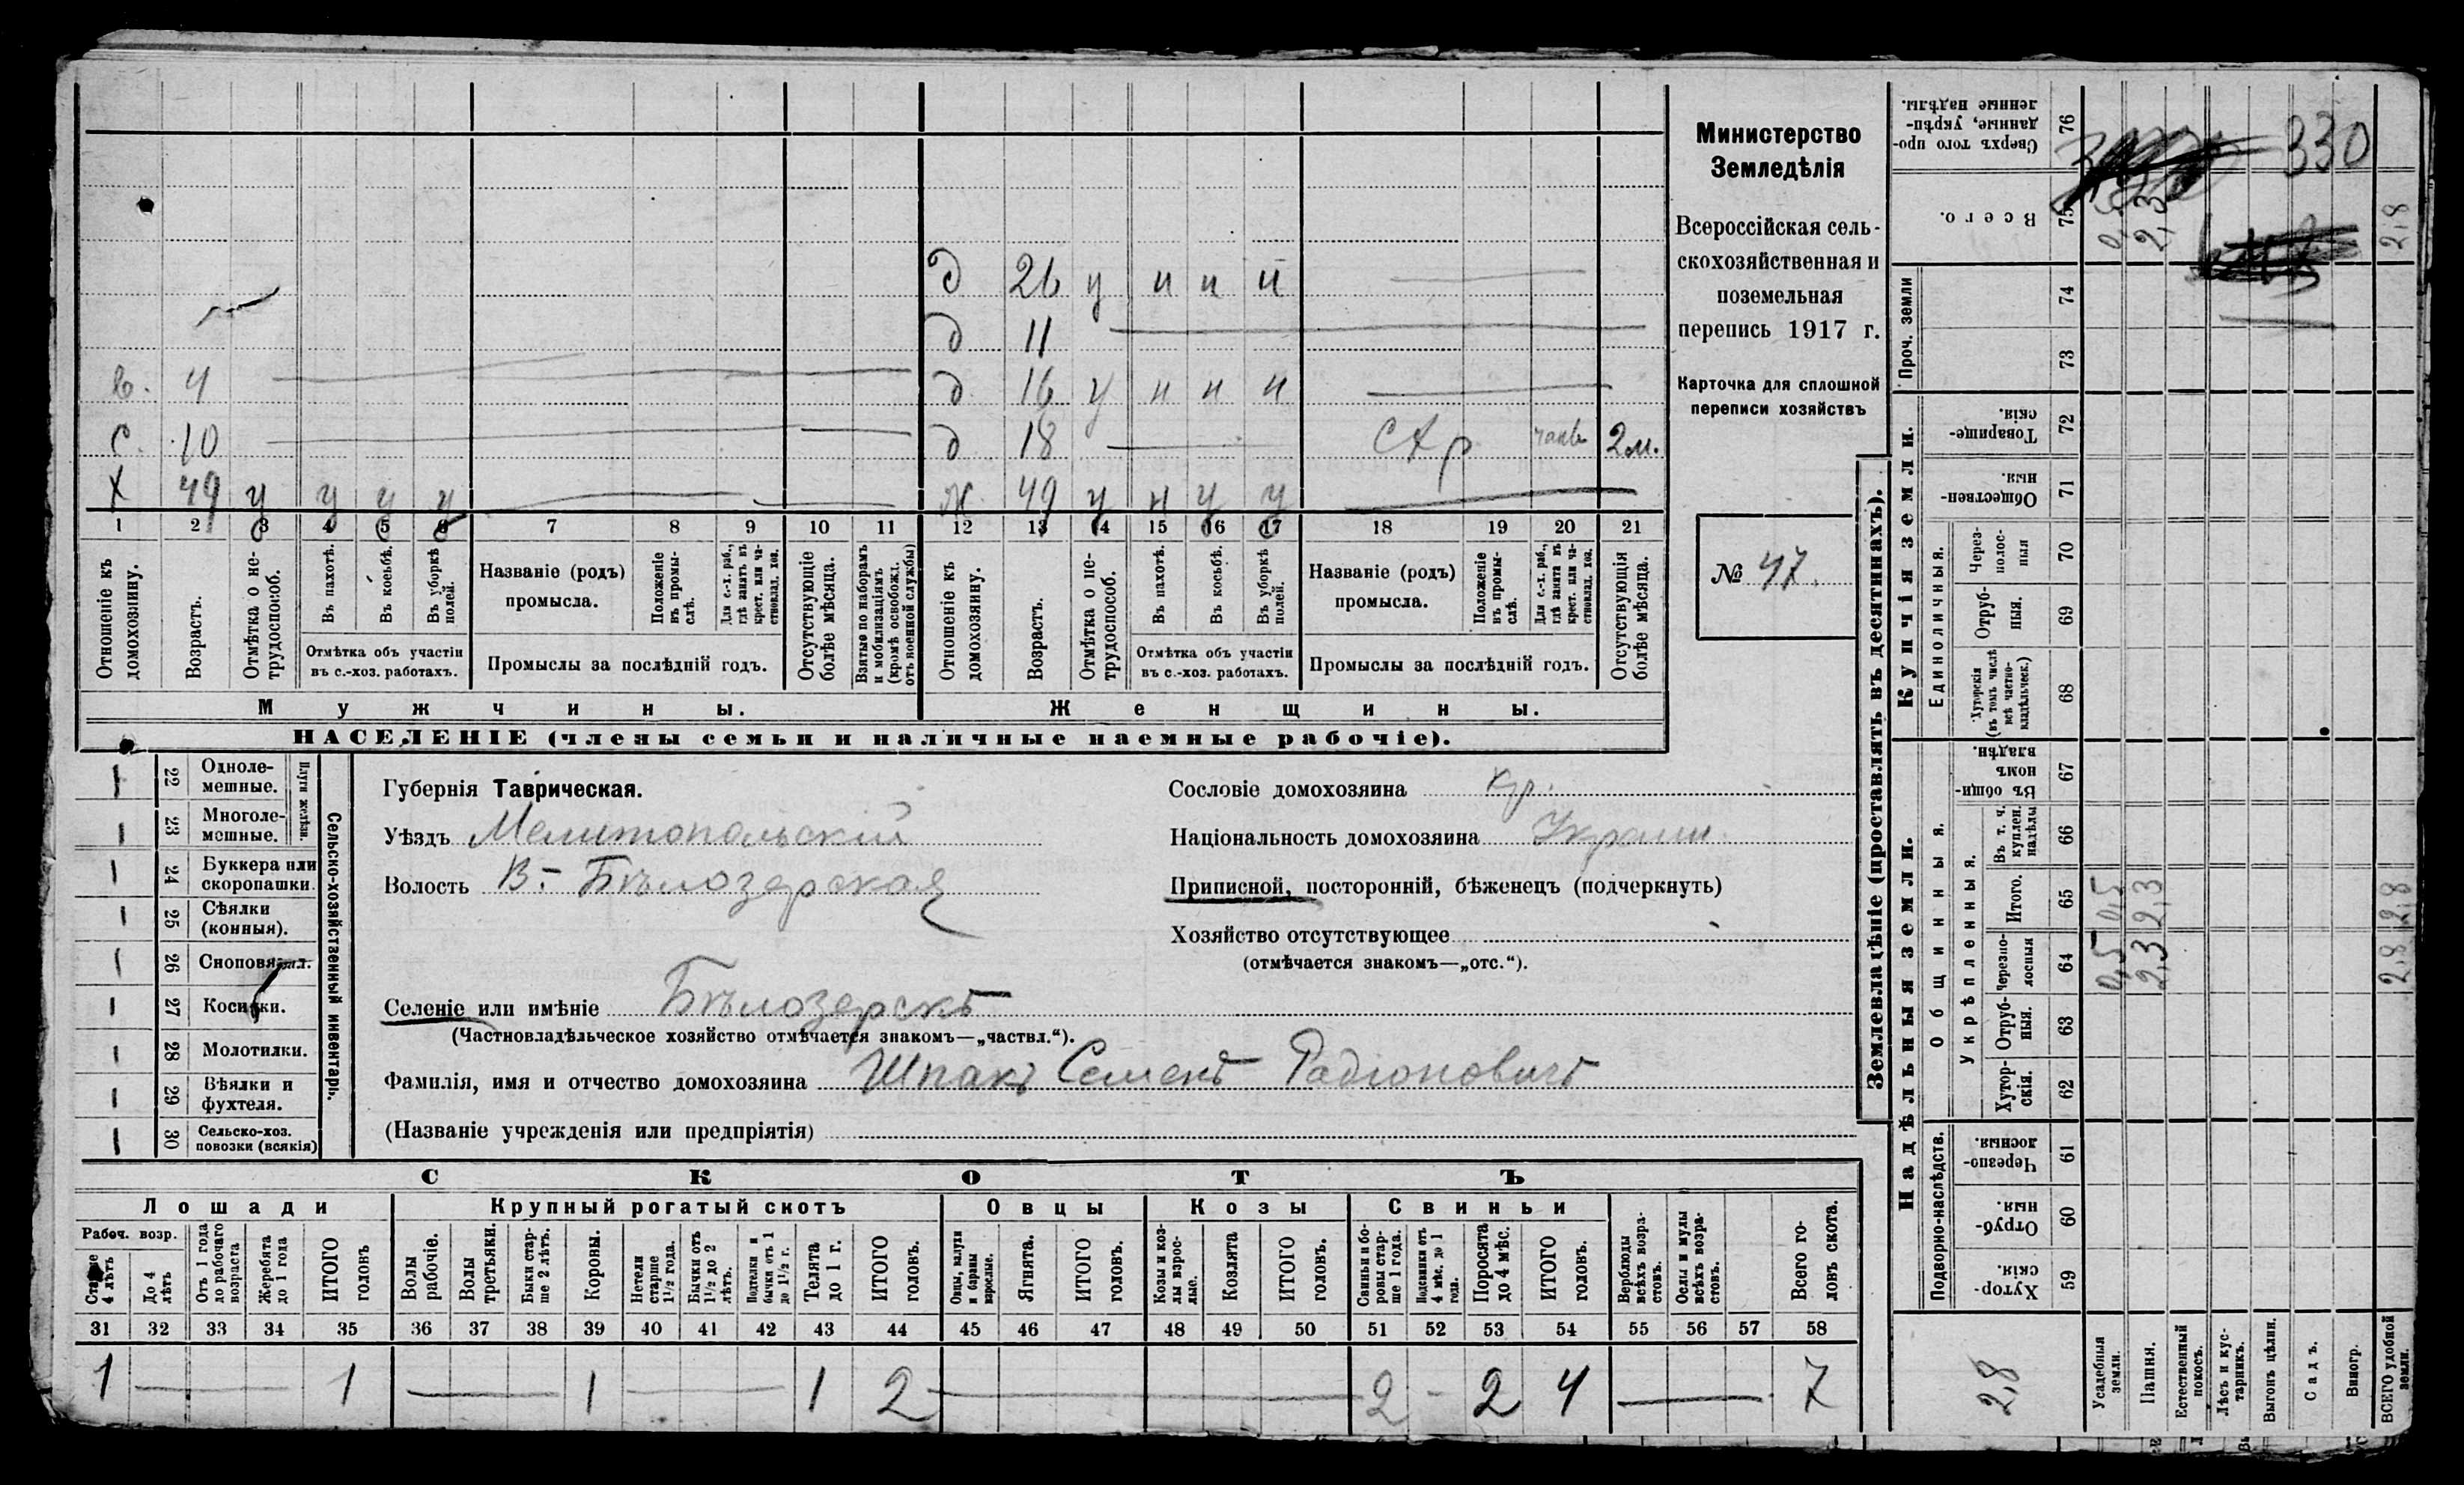 Министерство
Земледѣлія
Всероссійская сель-
скохозяйственная и
поземельная
перепись 1917 г.
Карточка для сплошной
переписи хозяйствъ
№ 47.
д 26 у н н н
д 11
в. 4 д 16 у н н н
с. 10 д 18 2 м.
х 49 у у у у ж 49 у н у у
1 2 3 4 5 6 7 8 9 10 11 12 13 14 15 16 17 18 19 20 21
Отношеніе къ домохозяину.
Возрастъ.
Отмѣтка о не-трудоспособ.
Въ пахотѣ.
Въ косьбѣ.
Въ уборкѣ полей.
Отмѣтка объ участіи
въ с.-хоз. работахъ.
Названіе (родъ)
промысла.
Положеніе въ промы-слѣ.
Для с.-х. раб., гдѣ занятъ въ крест. или ча-стновлад. хоз.
Промыслы за послѣдній годъ.
Отсутствующіе болѣе мѣсяца.
Взятые по наборамъ и мобилизаціямъ (кромѣ освобожд. отъ военной службы)
Отношеніе къ домохозяину.
Возрастъ.
Отмѣтка о не-трудоспособ.
Въ пахотѣ.
Въ косьбѣ.
Въ уборкѣ полей.
Отмѣтка объ участіи
въ с.-хоз. работахъ.
Названіе (родъ)
промысла.
Положеніе въ промы-слѣ.
Для с.-х. раб., гдѣ занята въ крест. или ча-стновлад. хоз.
Промыслы за послѣдній годъ.
Отсутствующія болѣе мѣсяца.
Мужчины. Женщины.
НАСЕЛЕНІЕ (члены семьи и наличные наемные рабочіе).
Сельско-хозяйственный инвентарь.
Плуги желѣзн.
22 Однолемешные.
23 Многолемешные.
24 Буккера или скоропашки.
25 Сѣялки (конныя).
26 Сноповязал.
27 Косилки.
28 Молотилки.
29 Вѣялки и фухтеля.
30 Сельско-хоз. повозки (всякія)
Губернія Таврическая.
Уѣздъ Мелитопольскій
Волость В.-Бѣлозерская
Селеніе или имѣніе Бѣлозерскъ
(Частновладѣльческое хозяйство отмѣчается знакомъ—„частвл.“).
Фамилія, имя и отчество домохозяина Шпакъ Семенъ Радіоновичъ
(Названіе учрежденія или предпріятія)
Сословіе домохозяина кр.
Національность домохозяина Украин.
Приписной, посторонній, бѣженецъ (подчеркнуть)
Хозяйство отсутствующее
(отмѣчается знакомъ—„отс.“).
СКОТЪ
Лошади Крупный рогатый скотъ Овцы Козы Свиньи
Рабоч. возр.
Старше 4 лѣтъ
До 4 лѣтъ
Отъ 1 года до рабочаго возраста
Жеребята до 1 года
ИТОГО головъ
Волы рабочіе.
Волы третьяки.
Быки стар-ше 2 лѣтъ.
Коровы.
Нетели старше 1½ года.
Бычки отъ 1½ до 2 лѣтъ.
Подтелки и бычки отъ 1 до 1½ г.
Телята до 1 г.
ИТОГО головъ.
Овцы, валухи и бараны взрослые.
Ягнята.
ИТОГО головъ.
Козы и коз-лы взрос-лые.
Козлята
ИТОГО головъ.
Свиньи и бо-ровы стар-ше 1 года.
Подсвинки отъ 4 мѣс. до 1 года.
Поросята до 4 мѣс.
ИТОГО головъ.
Верблюды всѣхъ возра-стовъ.
Ослы и мулы всѣхъ возра-стовъ.
Всего го-ловъ скота.
31 32 33 34 35 36 37 38 39 40 41 42 43 44 45 46 47 48 49 50 51 52 53 54 55 56 57 58
1 1 1 1 2 2 2 4 7
Землевладѣніе (проставлять въ десятинахъ).
Купчія земли.
Надѣльныя земли.
Сверхъ того про-данные, укрѣп-ленные надѣлы. 76
330
Всего. 75 0,5 2,3 2,8
Проч. земли 74 73
Товарище-скія. 72
Обществен-ныя. 71
Единоличныя.
Через-полос-ныя 70
Отруб-ныя. 69
Хуторскія (въ томъ числѣ всѣ частно-владѣльческ.) 68
Общинныя.
Въ общин-номъ владѣн. 67
Укрѣпленныя.
Въ т. ч. куплен. надѣлы 66
Итого. 65 0,5 2,3 2,8
Черезпо-лосныя 64 0,5 2,3 2,8
Отруб-ныя. 63
Хутор-скія. 62
Подворно-наслѣдств.
Черезпо-лосныя. 61
Отруб-ныя. 60
Хутор-скія. 59
2,8
Усадебныя земли.
Пашня.
Естественный покосъ.
Лѣсъ и кус-тарникъ.
Выгонъ цѣлин.
Садъ.
Виногр.
ВСЕГО удобной земли.